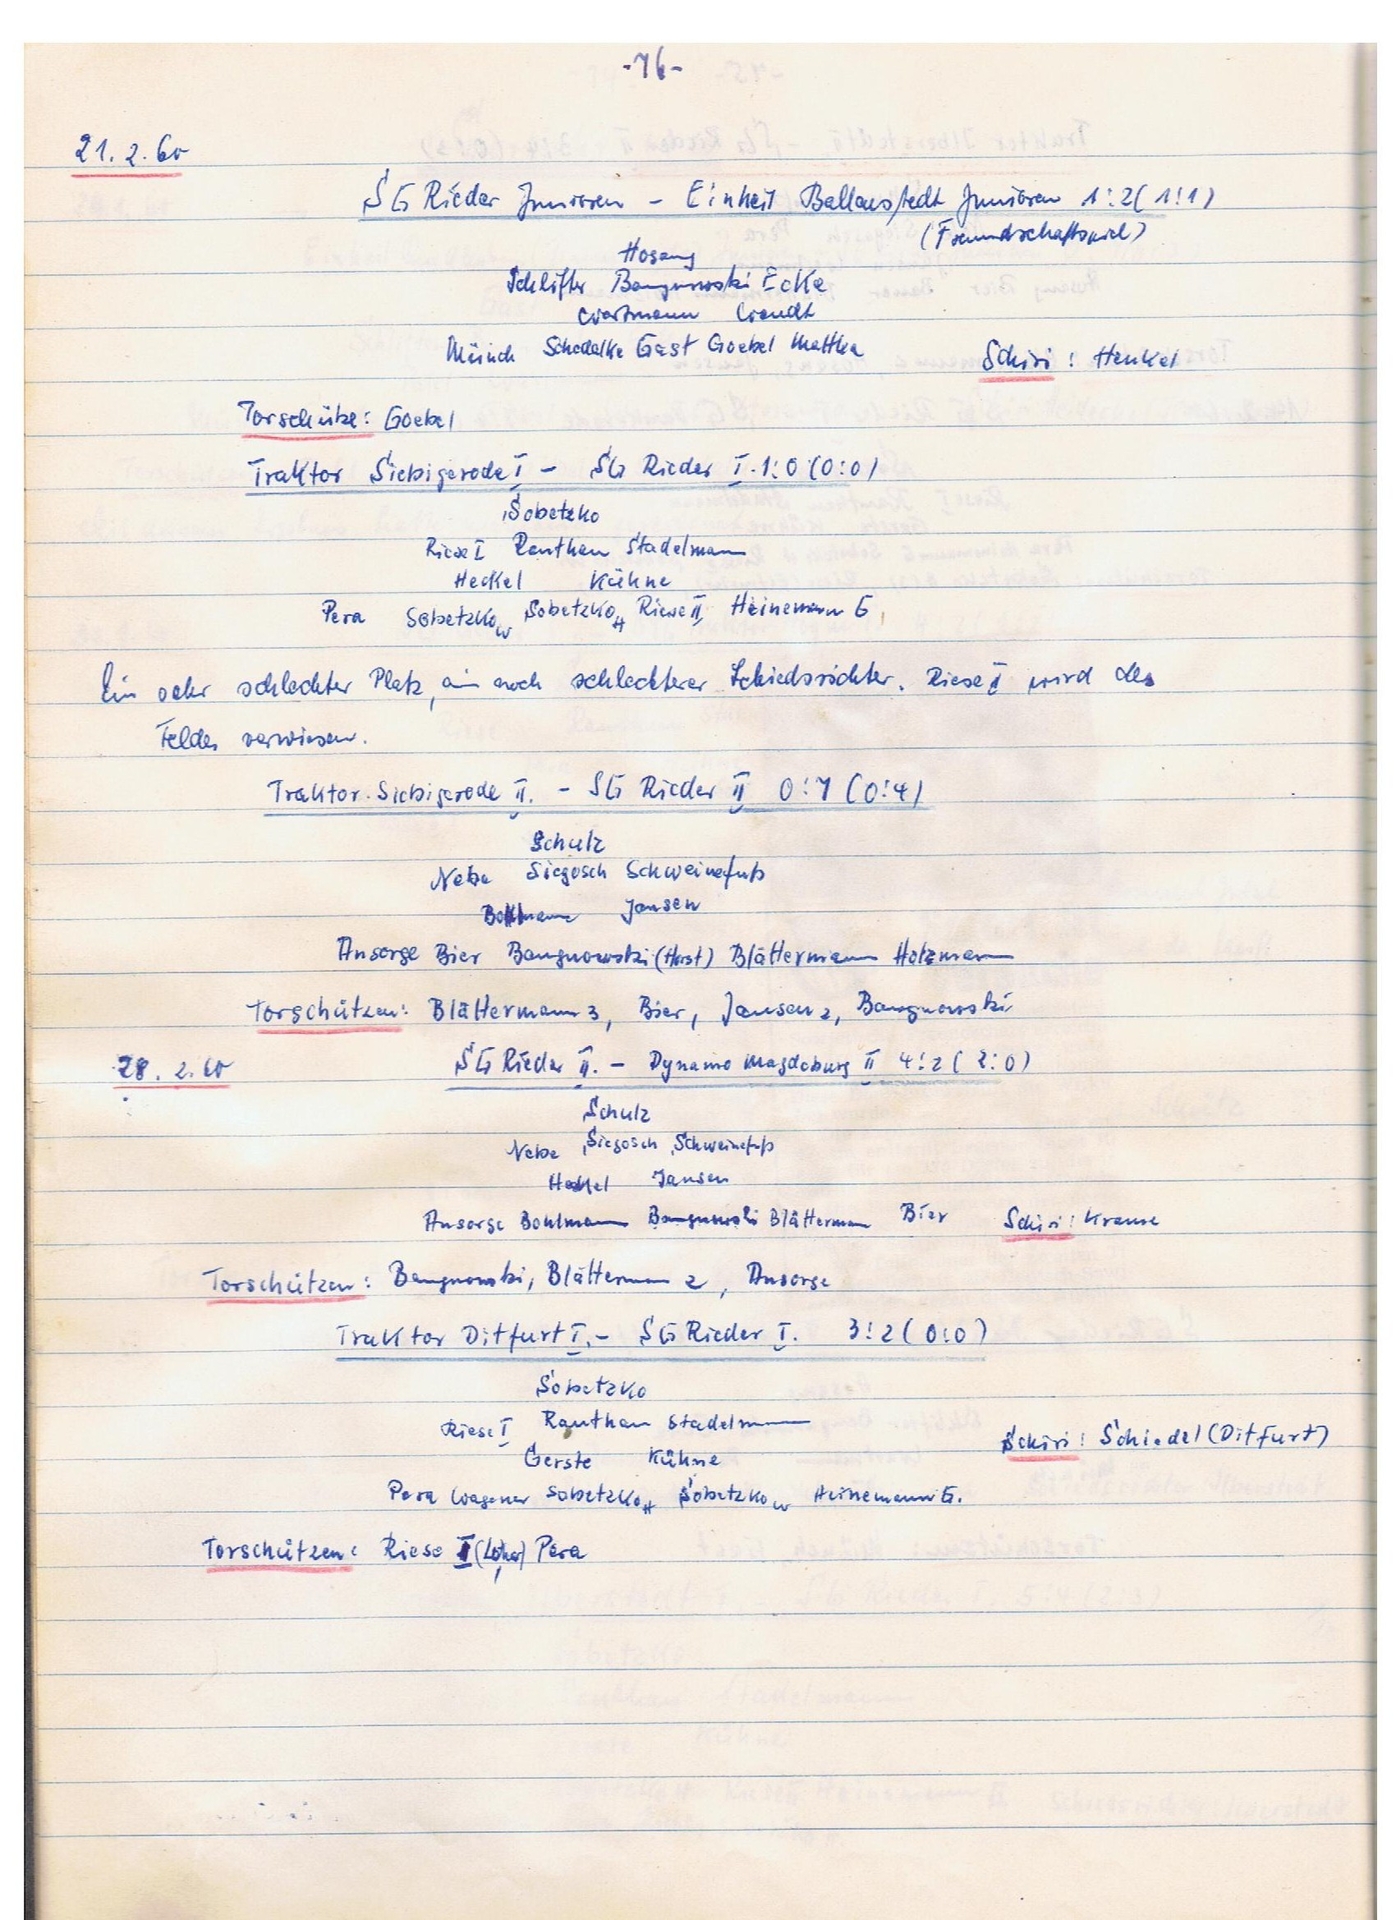 -76-
21.2.60
SG Rieder Junioren - Einheit Ballenstedt Junioren 1:2 (1:1)
(Freundschaftsspiel)
Hosang
Schlifter Bangnowski Ecke
Wartmann Wendt
Münch Schedalke Gast Goebel Mattka
Schiri: Henkel
Torschütze: Goebel
Traktor Siebigerode I - SG Rieder I. 1:0 (0:0)
Sobetzko
Riese I Rauthan Stadelmann
Heckel Kühne
Pera Sobetzko W Sobetzko H Riese II Heinemann G.
Ein sehr schlechter Platz, ein noch schlechterer Schiedsrichter. Riese I wird des
Feldes verwiesen.
Traktor Siebigerode II. - SG Rieder II 0:7 (0:4)
Schulz
Nebe Siegosch Schweinefuß
Bohlmann Jansen
Ansorge Bier Bangnowski (Horst) Blättermann Holzmann
Torschützen: Blättermann 3, Bier, Jansen 2, Bangnowski
28.2.60
SG Rieder II. - Dynamo Magdeburg II 4:2 (2:0)
Schulz
Nebe Siegosch Schweinefuß
Heckel Jansen
Ansorge Bohlmann Bangnowski Blättermann Bier
Schiri: Krause
Torschützen: Bangnowski, Blättermann 2, Ansorge
Traktor Ditfurt I. - SG Rieder I. 3:2 (0:0)
Sobetzko
Riese I Rauthan Stadelmann
Schiri: Schiedel (Ditfurt)
Gerste Kühne
Pera Wagener Sobetzko H Sobetzko W Heinemann G.
Torschützen: Riese I (Lothar) Pera